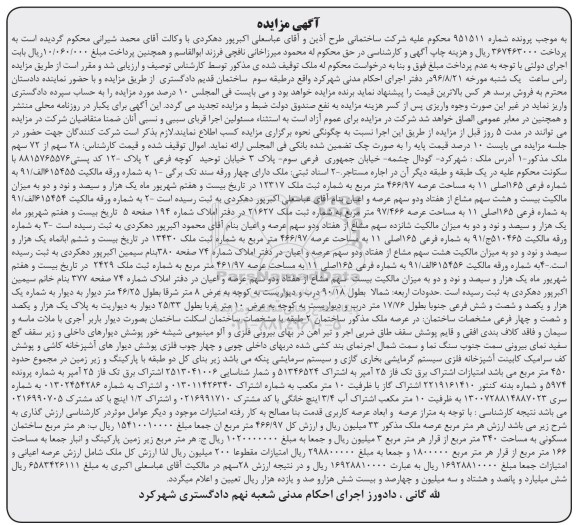 آگهی مزایده
به موجب پرونده شماره ۹۵۱۵۱۱ محکوم علیه شرکت ساختمانی طرح آذین و آقای عباسعلی اکبرپور دهکردی با وکالت آقای محمد شیرانی محکوم گردیده است به
پرداخت ۳۶۷۴۶۳۰۰۰ ریال و هزینه چاپ آگهی و کارشناسی در حق محکوم له محمود میرزاخانی نافچی فرزند ابوالقاسم و همچنین پرداخت مبلغ ۱۰/۰۶۰/۰۰۰ ریال بابت
اجرای دولتی با توجه به عدم پرداخت مبلغ فوق و بنا به درخواست محکوم له ملک توقیف شده ی مذکور توسط کارشناس توصیف و ارزیابی شد و مقرر است از طریق مزایده
راس ساعت یک شنبه مورخه ۹۶/۸/۲۱ در دفتر اجرای احکام مدنی شهرکرد واقع درطبقه سوم ساختمان قدیم دادگستری از طریق مزایده و با حضور نماینده دادستان
محترم به فروش برسد هر کس بالاترین قیمت را پیشنهاد نماید برنده مزایده خواهد بود و می بایست فی المجلس ۱۰ درصد مورد مزایده را به حساب سپرده دادگستری
واریز نماید در غیر این صورت وجوه واریزی پس از کسر هزینه مزایده به نفع صندوق دولت ضبط و مزایده تجدید می گردد. این آگهی برای یکبار در روزنامه محلی منتشر
و همچنین در معابر عمومی الصاق خواهد شد شرکت در مزایده برای عموم آزاد است به استثناء مسئولین اجرا قربای سببی و نسبی آنان ضمنا متقاضیان شرکت در مزایده
می توانند در مدت ۵ روز قبل از مزایده از طریق این اجرا نسبت به چگونگی نحوه برگزاری مزایده کسب اطلاع نمایند.لازم بذکر است شرکت کنندگان جهت حضور در
جلسه مزایده می بایست ۱۰ درصد قیمت پایه را به صورت چک تضمین شده بانکی فی المجلس ارائه نماید. اموال توقیف شده و قیمت کارشناس: ۲۸ سهم از ۷۲ سهم
ملک مذکور-۱ آدرس ملک : شهرکرد- گودال چشمه- خیابان جمهوری فرعی سوم- پلاک ۳ خیابان توحید کوچه فرعی ۲ پلاک ۱۲- کد پستی ۸۸۱۵۷۶۵۵۷۶ با
سکونت محکوم علیه در یک طبقه و طبقه دیگر آن در اجاره مستاجر.-۲ اسناد ثبتی: ملک دارای چهار ورقه سند تک برگی -۱ به شماره ورقه مالکیت ۶۱۵۴۵۵الف/۹۱ به
شماره فرعی ۱۶۵اصلی ۱۱ به مساحت عرصه ۴۶۶/۹۷ متر مربع به شماره ثبت ملک ۱۲۳۱۷ در تاریخ بیست و هفتم شهریور ماه یک هزار و سیصد و نود و دو به میزان
مالکیت بیست و هشت سهم مشاع از هفتاد ودو سهم عرصه و اعیان بنام آقای عباسعلی اکبرپور دهکردی به ثبت رسیده است -۲ به شماره ورقه مالکیت ۶۱۵۴۵۴الف/۹۱
به شماره فرعی ۱۶۵اصلی ۱۱ به مساحت عرصه ۹۷/۴۶۶ متر مربع به شماره ثبت ملک ۲۱۶۲۷ در دفتر املاک شماره ۱۹۴ صفحه ۵ تاریخ بیست و هفتم شهریور ماه
یک هزار و سیصد و نود و دو به میزان مالکیت شانزده سهم مشاع از هفتاد ودو سهم عرصه و اعیان بنام آقای محمود اکبرپور دهکردی به ثبت رسیده است -۳ به شماره
ورقه مالکیت ۵۱۰۴۶۵ج/۹۱ به شماره فرعی ۱۶۵اصلی ۱۱ به مساحت عرصه ۴۶۶/۹۷ متر مربع به شماره ثبت ملک ۱۳۴۳۰ در تاریخ بیست و ششم ابانماه یک هزار و
سیصد و نود و دو به میزان مالکیت هشت سهم مشاع از هفتاد ودو سهم عرصه و اعیان در دفتر املاک شماره ۷۴ صفحه ۳۸۰بنام سیمین اکبرپور دهکردی به ثبت رسیده
است.-۴به شماره ورقه مالکیت ۶۱۵۴۵۶الف/۹۱ به شماره فرعی ۱۶۵اصلی ۱۱ به مساحت عرصه ۴۶۱/۹۷ متر مربع به شماره ثبت ملک ۲۴۲۹ در تاریخ بیست و هفتم
شهریور ماه یک هزار و سیصد و نود و دو به میزان مالکیت بیست سهم مشاع از هفتاد ودو سهم عرصه و اعیان در دفتر املاک شماره ۷۴ صفحه ۳۷۷ بنام خانم سیمین
اکبرپور دهکردی به ثبت رسیده است .حدودات اربعه: شمالا بطول ۱۰/۱۸ درب و دیواریست به کوچه به عرض ۸ متر شرقا بطول ۴۶/۲۵ متر دیوار به دیوار به شماره یک
هزار و یکصد و شصت و شش فرعی جنوبا بطول ۱۷/۷۶ متر درب و دیواریست به کوچه به عرض ۱۰ متر غربا بطول ۲۵/۳۳ دیوار به دیواریت به پلاک یک هزار و یکصد
و شصت و چهار فرعی مشخصات ساختمان: در عرصه ملک مذکور ساختمان ۲طبقه با مشخصات ساختمان اسکلت ساختمان بصورت دیوار باربر آجری با ملات ماسه و
سیمان و فاقد کلاف بندی افقی و قایم پوشش سقف طاق ضربی اجر و تیر اهن در بهای بیرونی فلزی و آلو مینیومی شیشه خور پوشش دیوارهای داخلی و زیر سقف گچ
سفید نمای بیرونی سمت جنوب سنگ نما و سمت شمال اجرنمای بند کشی شده دربهای داخلی چوبی و چهار چوب فلزی پوشش دیوار های آشپزخانه کاشی و پوشش
کف سرامیک کابینت آشپزخانه فلزی سیستم گرمایشی بخاری گازی و سیستم سرمایشی پنکه می باشد زیر بنای کل دو طبقه با پارکینگ و زیر زمین در مجموع حدود
۴۵۰ متر مربع می باشد امتیازات اشتراک برق تک فاز ۲۵ آمپر به اشتراک ۵۱۳۴۶۵۲۴ و شمار شناسایی ۲۵۱۳۰۴۱۰۰۶ اشتراک برق تک فاز ۲۵ آمپر به شماره پرونده
۵۹۷۴ و شماره بدنه کنتور ۲۲۱۹۱۶۱۴۱۰ اشتراک گاز با ظرفیت ۱۰ متر مکعب به شماره اشتراک ۰۱۳۰۱۱۴۲۶۳۴۰ و اشتراک به شماره ۰۱۳۰۲۴۵۴۲۸۶ به شماره
سری ۱۳۰۰۷۲۸۸۱۴۸۸۷۰۲۳ به ظرفیت ۱۰ متر مکعب اشتراک آب ۳/۴ اینچ خانگی با کد مشترک ۰۲۱۶۹۹۱۷۱۰ و اشتراک ۱/۲ اینچ با کد مشترک ۰۲۱۶۹۹۰۷۰۵
می باشد نتیجه کارشناسی : با توجه به متراژ عرصه و ابعاد عرصه کاربری قدمت بنا مصالح به کار رفته امتیازات موجود و دیگر عوامل موثردر کارشناسی ارزش گذاری به
شرح زیر می باشد ارزش هر متر مربع عرصه ملک مذکور ۳۳ میلیون ریال و ارزش کل ۴۶۶/۹۷ متر مربع ان جمعا مبلغ ۱۵۴۱۰۰۱۰۰۰۰ ریال ب: هر متر مربع ساختمان
مسکونی به مساحت ۳۴۰ متر مربع از قرار هر متر مربع ۳ میلیون ریال و جمعا به مبلغ ۱۰۲۰۰۰۰۰۰۰ ریال ج: هر متر مربع زیر زمین پارکینگ و انبار جمعا به مساحت
۱۶۶ متر مربع از قرار هر متر مربع ۱۸۰۰۰۰۰ و جمعا به مبلغ ۲۹۸۸۰۰۰۰۰ ریال امتیازات مقطوعا ۲۰۰ میلیون ریال لذا ارزش کل ملک شامل ارزش عرصه اعیانی و
امتیازات جمعا مبلغ ۱۶۹۲۸۸۱۰۰۰۰ ریال به عبارت ۱۶۹۲۸۸۱۰۰۰۰ ریال و در نتیجه ارزش ۲۸سهم در مالکیت آقای عباسعلی اکبری به مبلغ ۶۵۸۳۴۲۶۱۱۱ ریال
شش میلیارد و پانصد و هشتاد و سه میلیون و چهارصد و بیست شش هزار و صد و یازده هزار ریال تعیین و اعلام میگردد.
لله گانی ، دادورز اجرای احکام مدنی شعبه نهم دادگستری شهرکرد